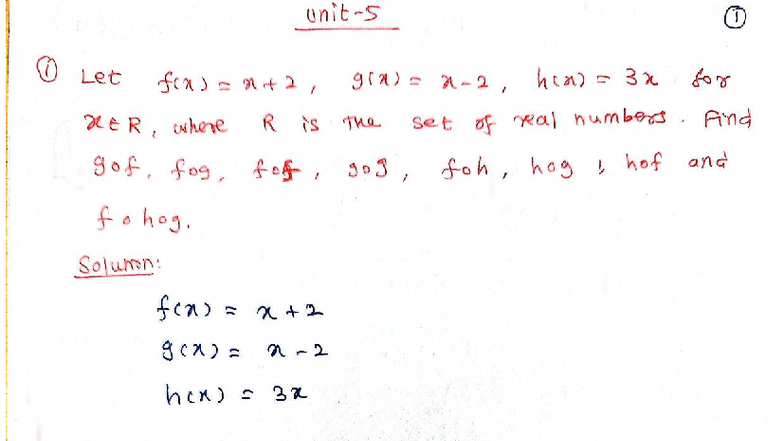 Unit-5 ①
① Let f(x) = x+2, g(x) = x-2, h(x) = 3x for
x∈R, where R is the set of real numbers. Find
gof, fog, fof, gog, foh, hog, hof and
fohog.
Solution:
f(x) = x+2
g(x) = x-2
h(x) = 3x